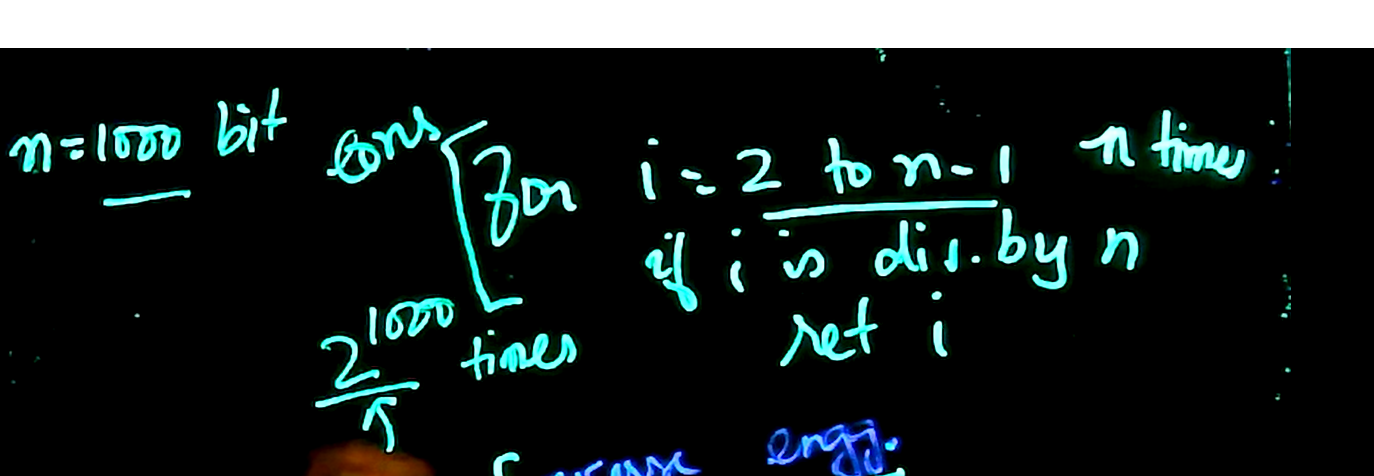 n=1000 bit
cons
for i=2 to n-1 n times
if i is div. by n
ret i
2^1000 times
engg.